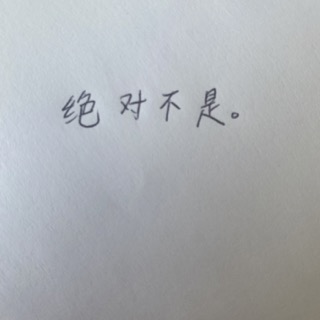 绝对不是。